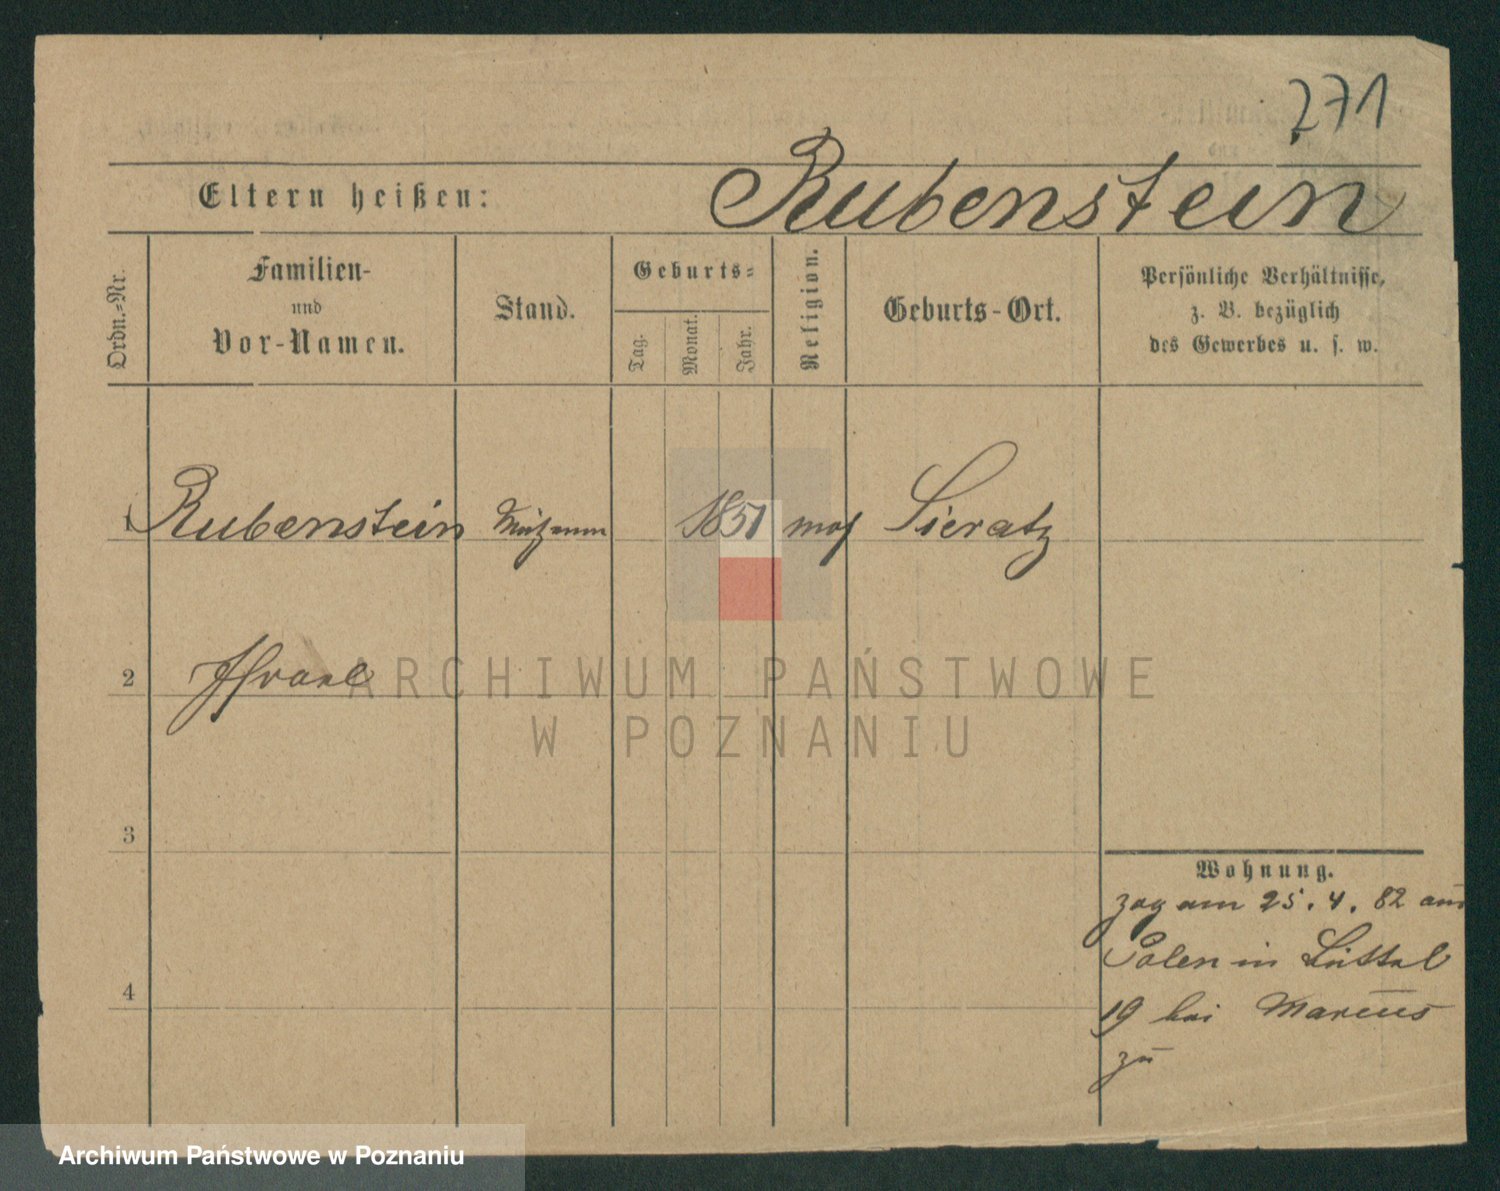 271
Eltern heißen: Rubenstein
Ordn.-Nr.
Familien-
und
Vor-Namen.
Stand.
Geburts-
Tag.
Monat.
Jahr.
Religion.
Geburts-Ort.
Persönliche Verhältnisse,
z. B. bezüglich
des Gewerbes u. s. w.
1 Rubenstein 1851 mos Sieratz
2 Israel
ARCHIWUM PAŃSTWOWE
W POZNANIU
3
Wohnung.
zog am 25. 4. 82 aus
Polen in
4
19 bei Marcus
zu
Archiwum Państwowe w Poznaniu